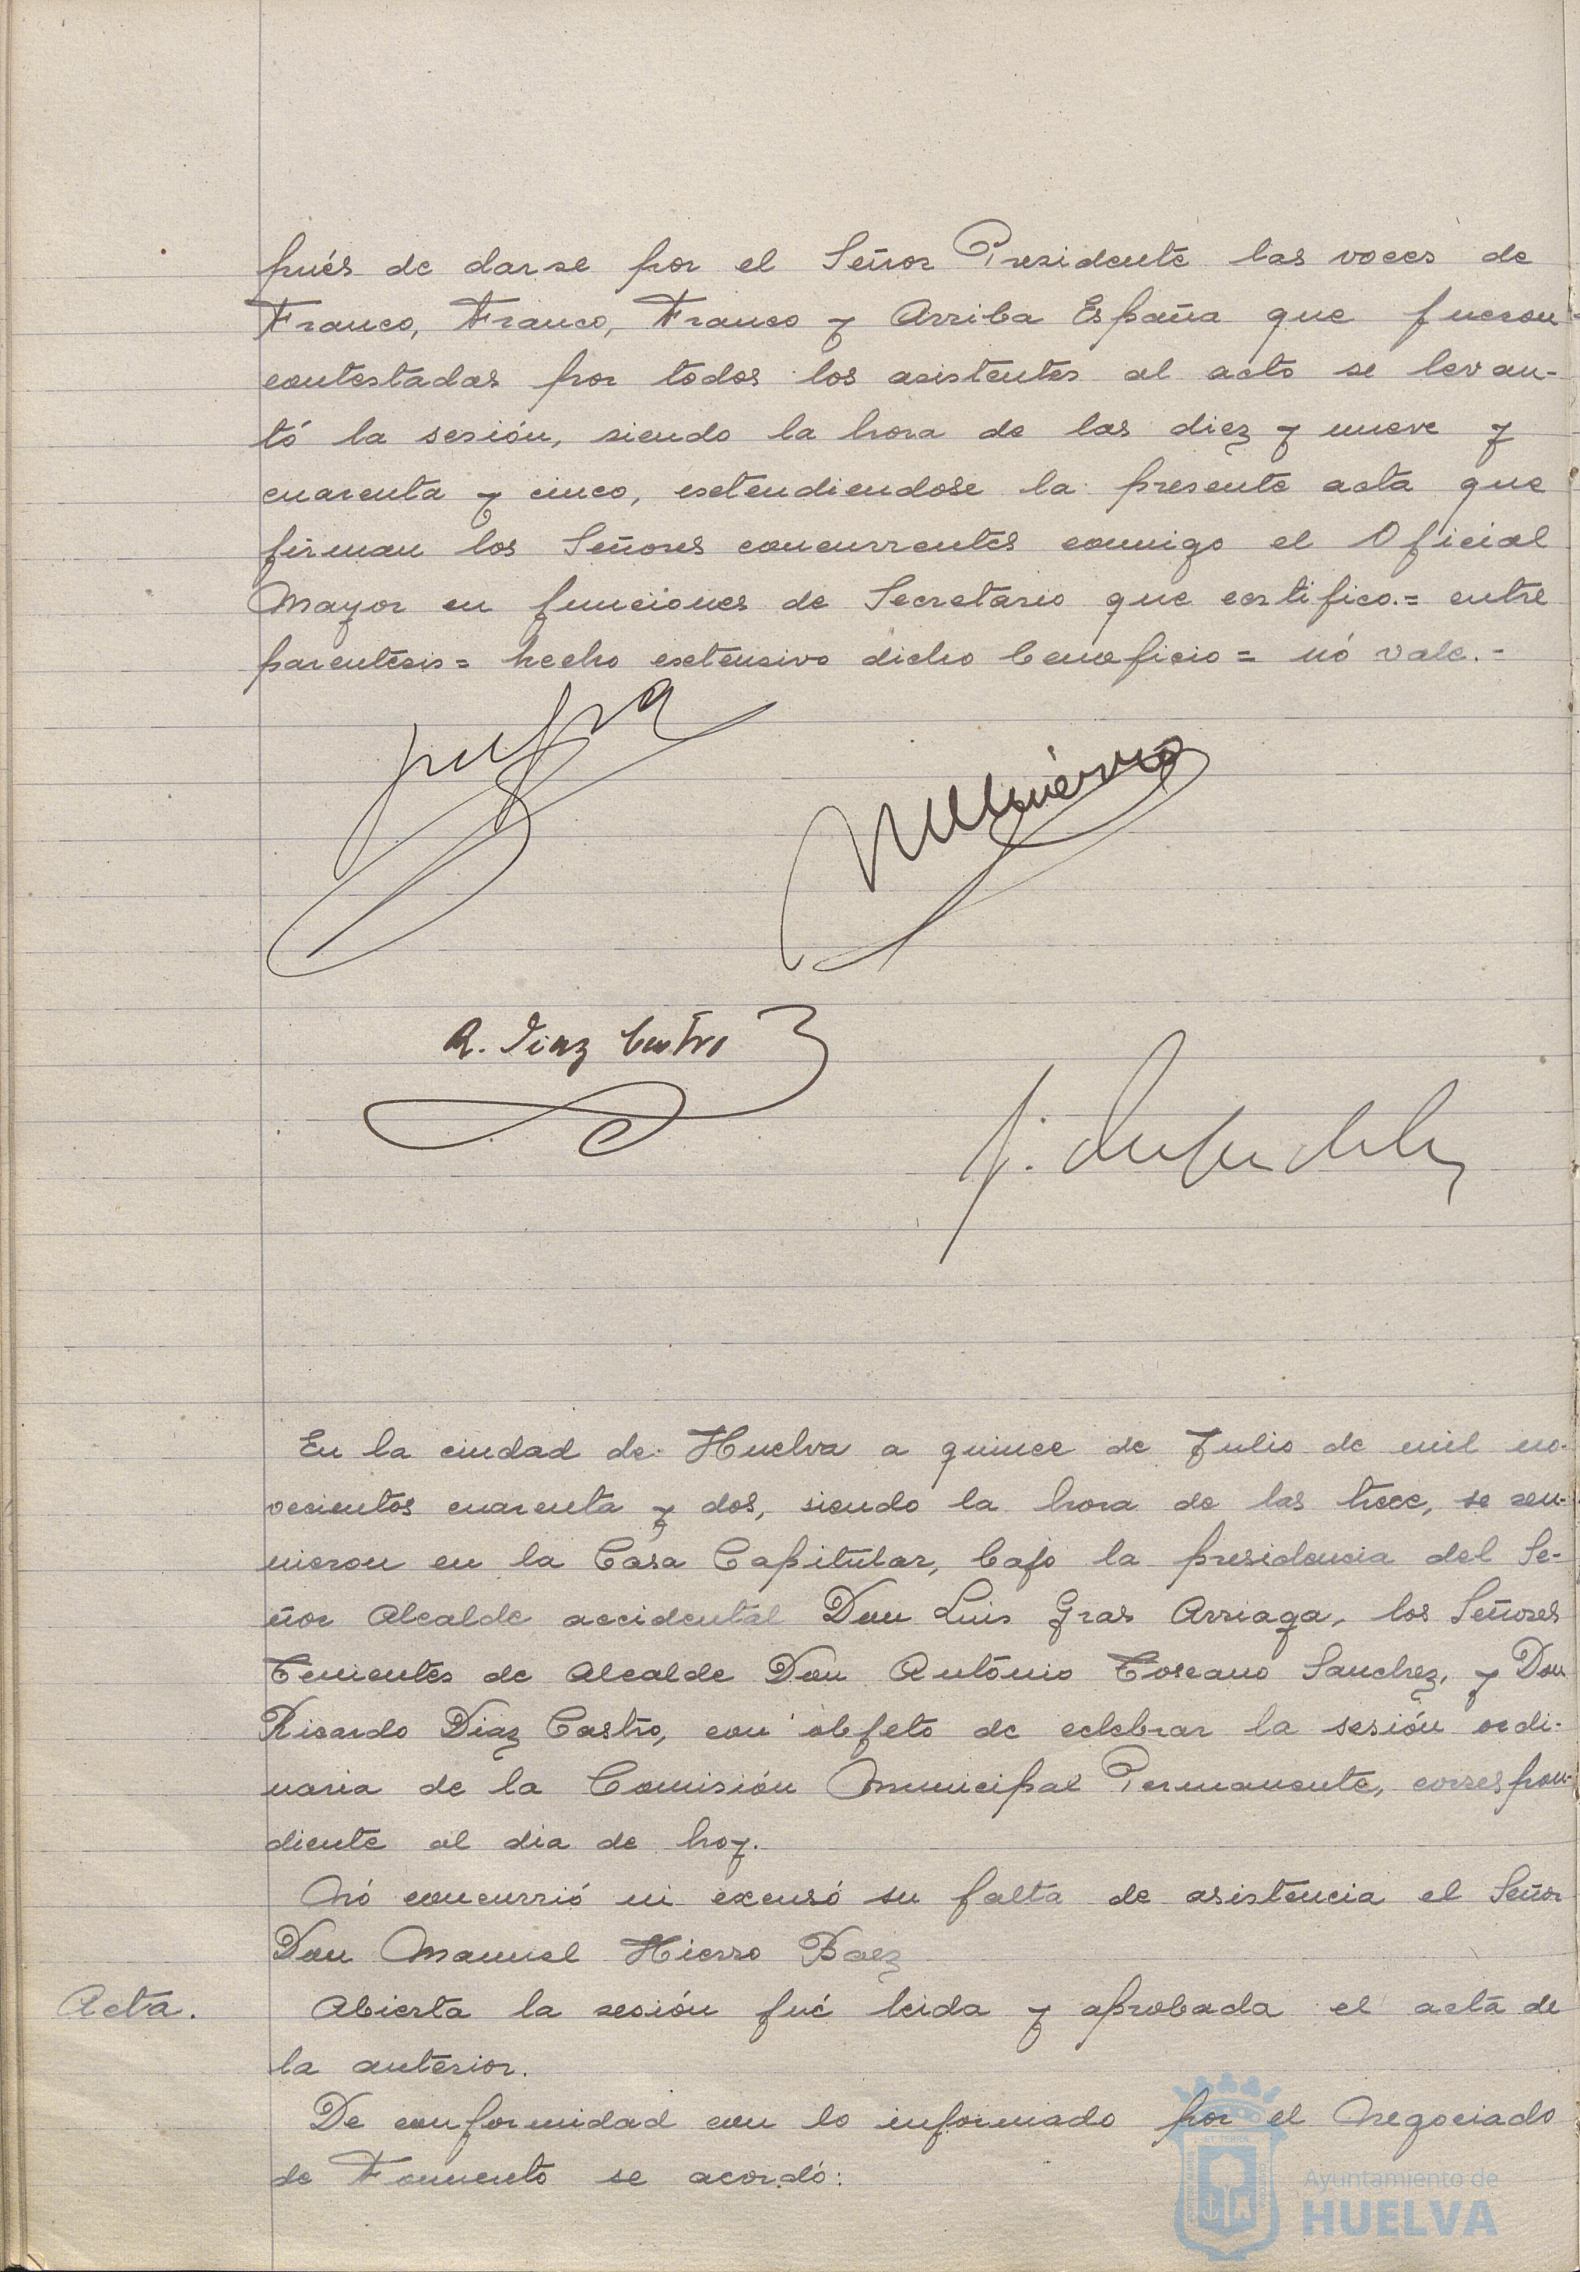 pués de darse por el Señor Presidente las voces de
Franco, Franco, Franco y Arriba España que fueron
contestadas por todos los asistentes al acto se levan-
tó la sesión, siendo la hora de las diez y nueve y
cuarenta y cinco, extendiendose la presente acta que
firman los Señores concurrentes conmigo el Oficial
Mayor en funciones de Secretario que certifico.= entre
parentesis = hecho extensivo dicho beneficio = nó vale.-
R. Diaz Castro
En la ciudad de Huelva a quince de Julio de mil no-
vecientos cuarenta y dos, siendo la hora de las trece, se reu-
nieron en la Casa Capitular, bajo la presidencia del Se-
ñor Alcalde accidental Don Luis Gras Arriaga, los Señores
Tenientes de Alcalde Don António Toscano Sanchez, y Don
Ricardo Diaz Castro, con objeto de celebrar la sesión ordi-
naria de la Comisión Municipal Permanente, correspon-
diente al dia de hoy.
Nó concurrió ni excusó su falta de asistencia el Señor
Don Manuel Hierro Baez
Acta.
Abierta la sesión fué leida y aprobada el acta de
la anterior.
De conformidad con lo informado por el Negociado
de Fomento se acordó:
Ayuntamiento de
HUELVA